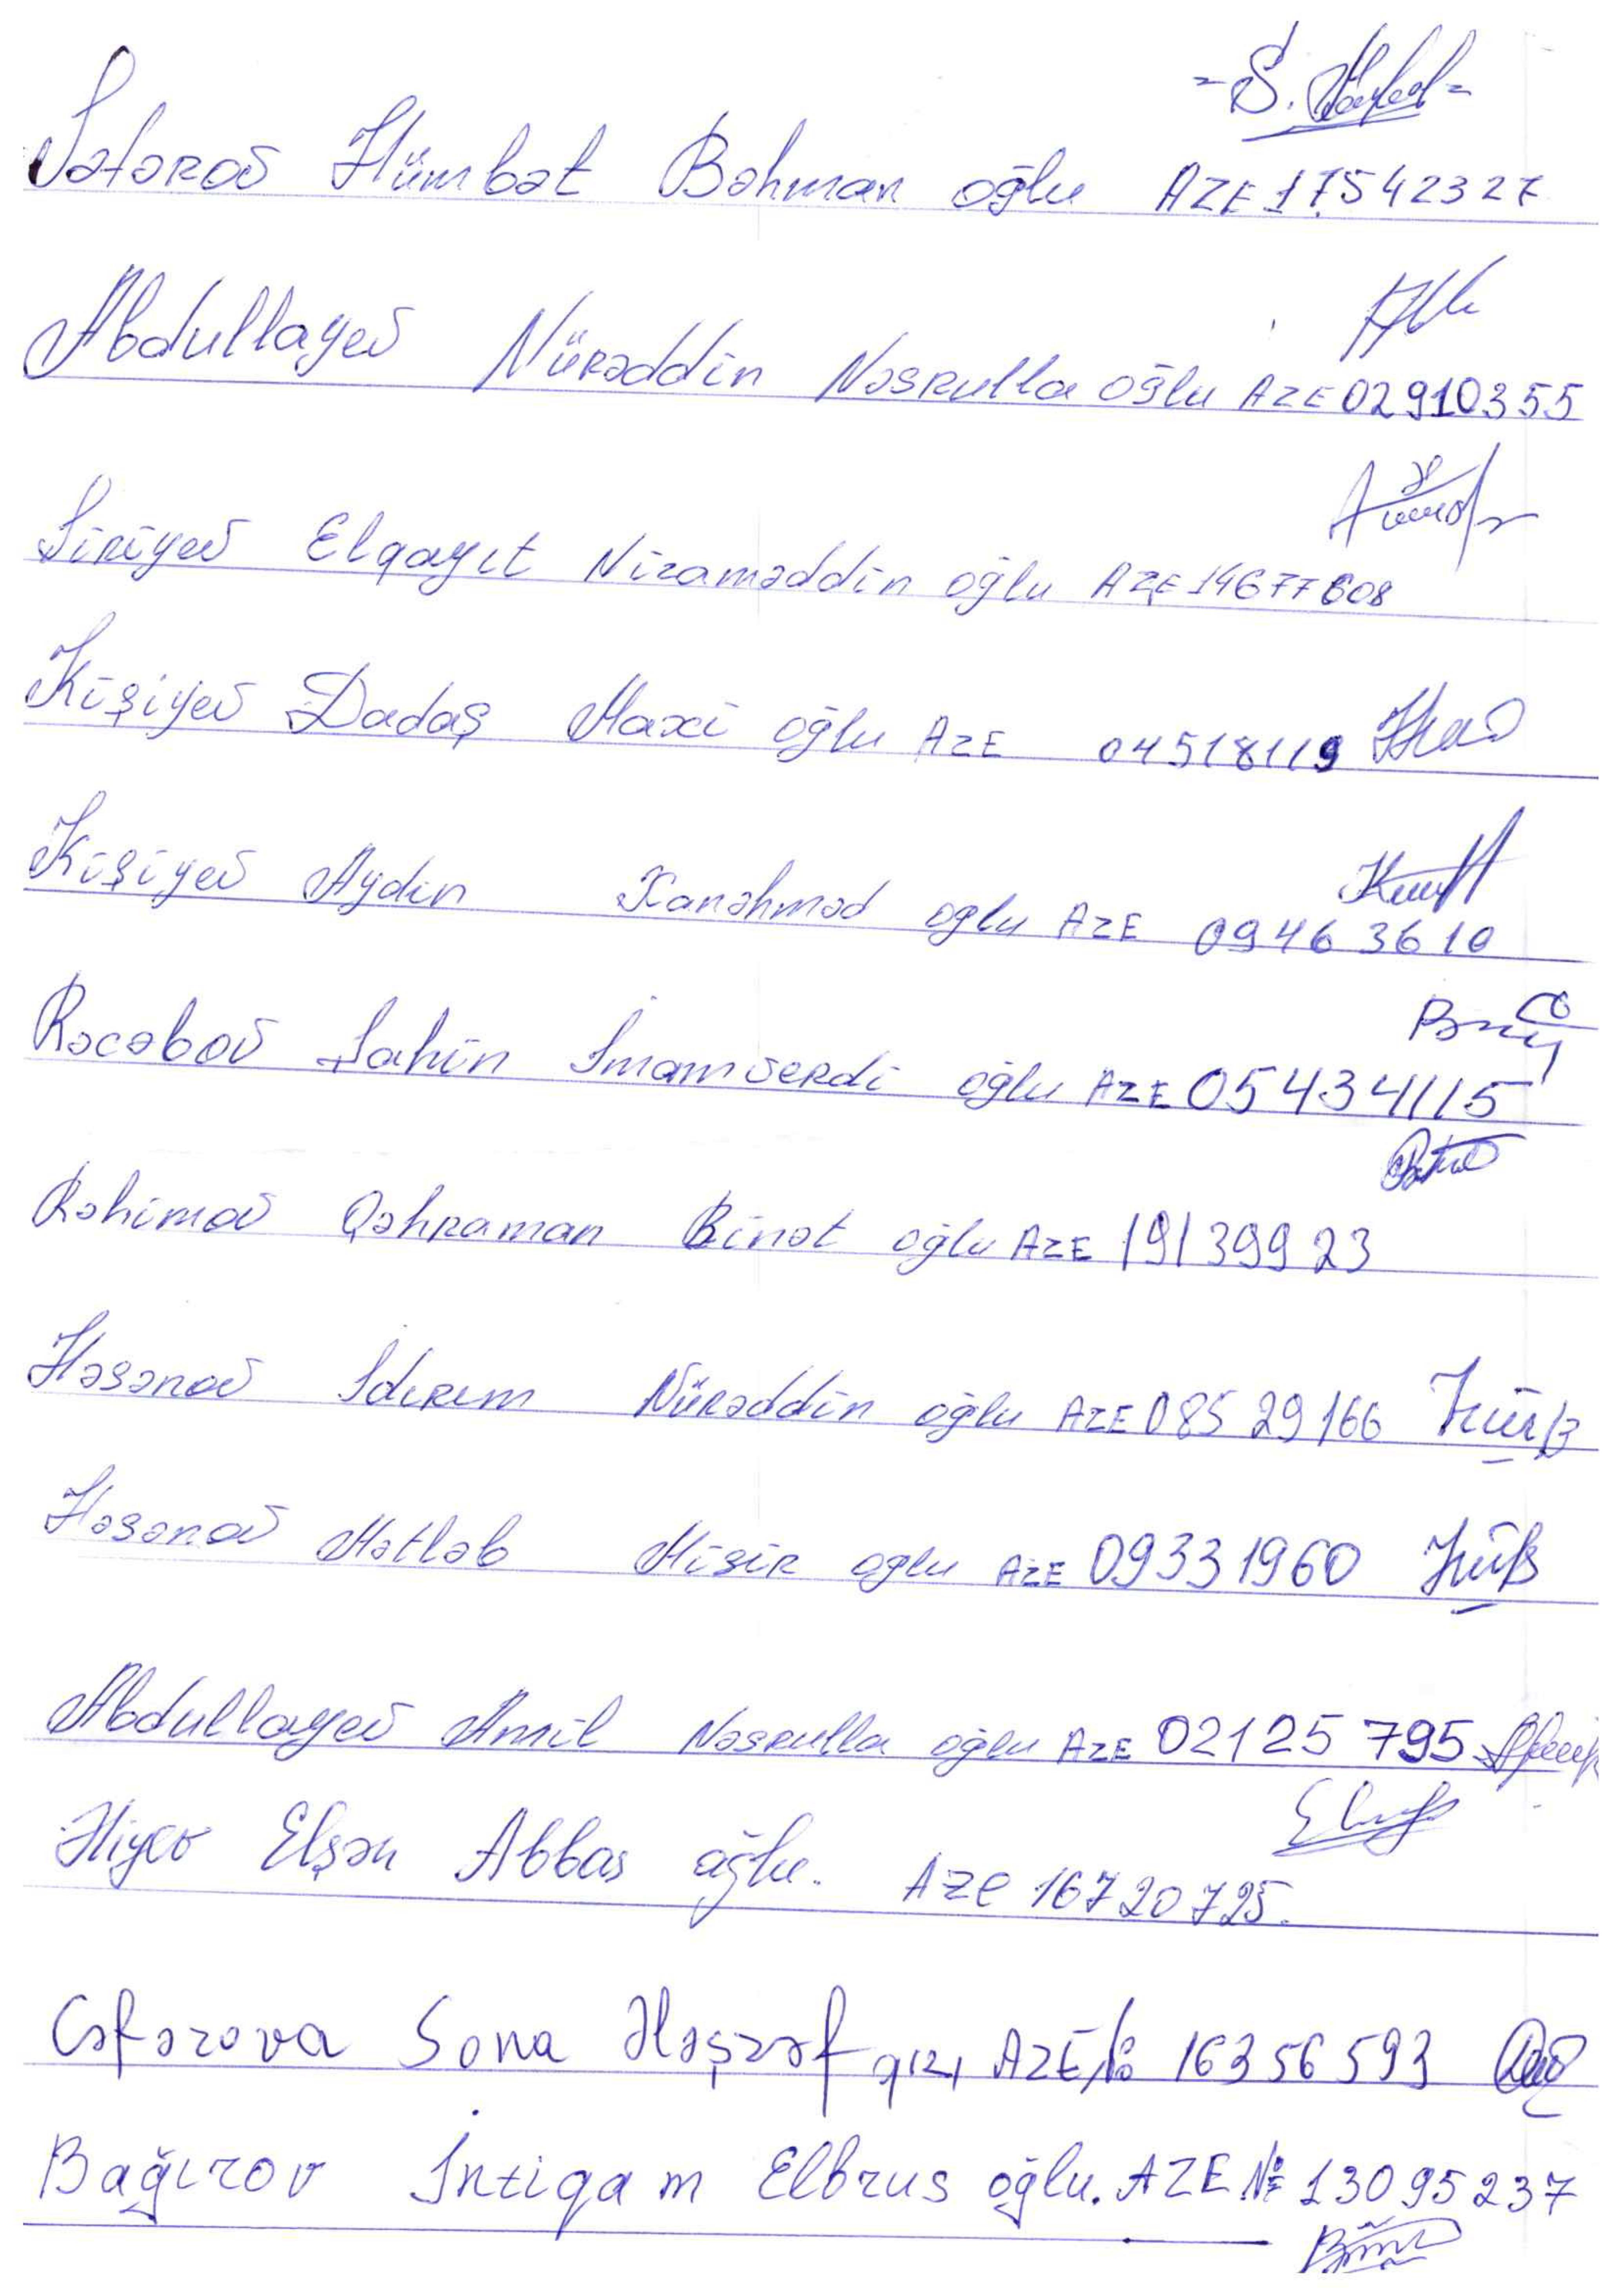 Səfərov Hümbət Bəhman oğlu AZE 17542327
Abdullayev Nürəddin Nəsrulla oğlu AZE 02910355
Şiriyev Elqayıt Nizaməddin oğlu AZE 14677608
Kişiyev Dadaş Maxi oğlu AZE 04518119
Kişiyev Aydın Xanəhməd oglu AZE 09463610
Rəcəbov Şahin İmamverdi oğlu AZE 05434115
Rəhimov Qəhraman Binət oğlu AZE 19139923
Həsənov İdırım Nürəddin oğlu AZE 08529166
Həsənov Mətləb Misir oglu AZE 09331960
Abdullayev Amil Nəsrulla oğlu AZE 02125795
Əliyev Elşən Abbas oğlu. AZE 16720725.
Cəfərova Sona Ələşrəf qızı AZE № 16356593
Bağırov İntiqam Elbrus oğlu. AZE № 13095237